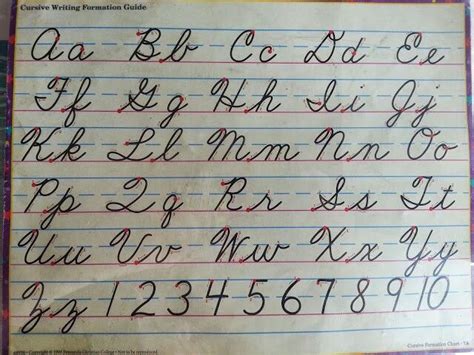 Cursive Writing Formation Guide
Aa Bb Cc Dd Ee
Ff Gg Hh Ii Jj
Kk Ll Mm Nn Oo
Pp Qq Rr Ss Tt
Uu Vv Ww Xx Yy
Zz 1 2 3 4 5 6 7 8 9 10
Copyright © Pensacola Christian College • Not to be reproduced. Cursive Formation Chart